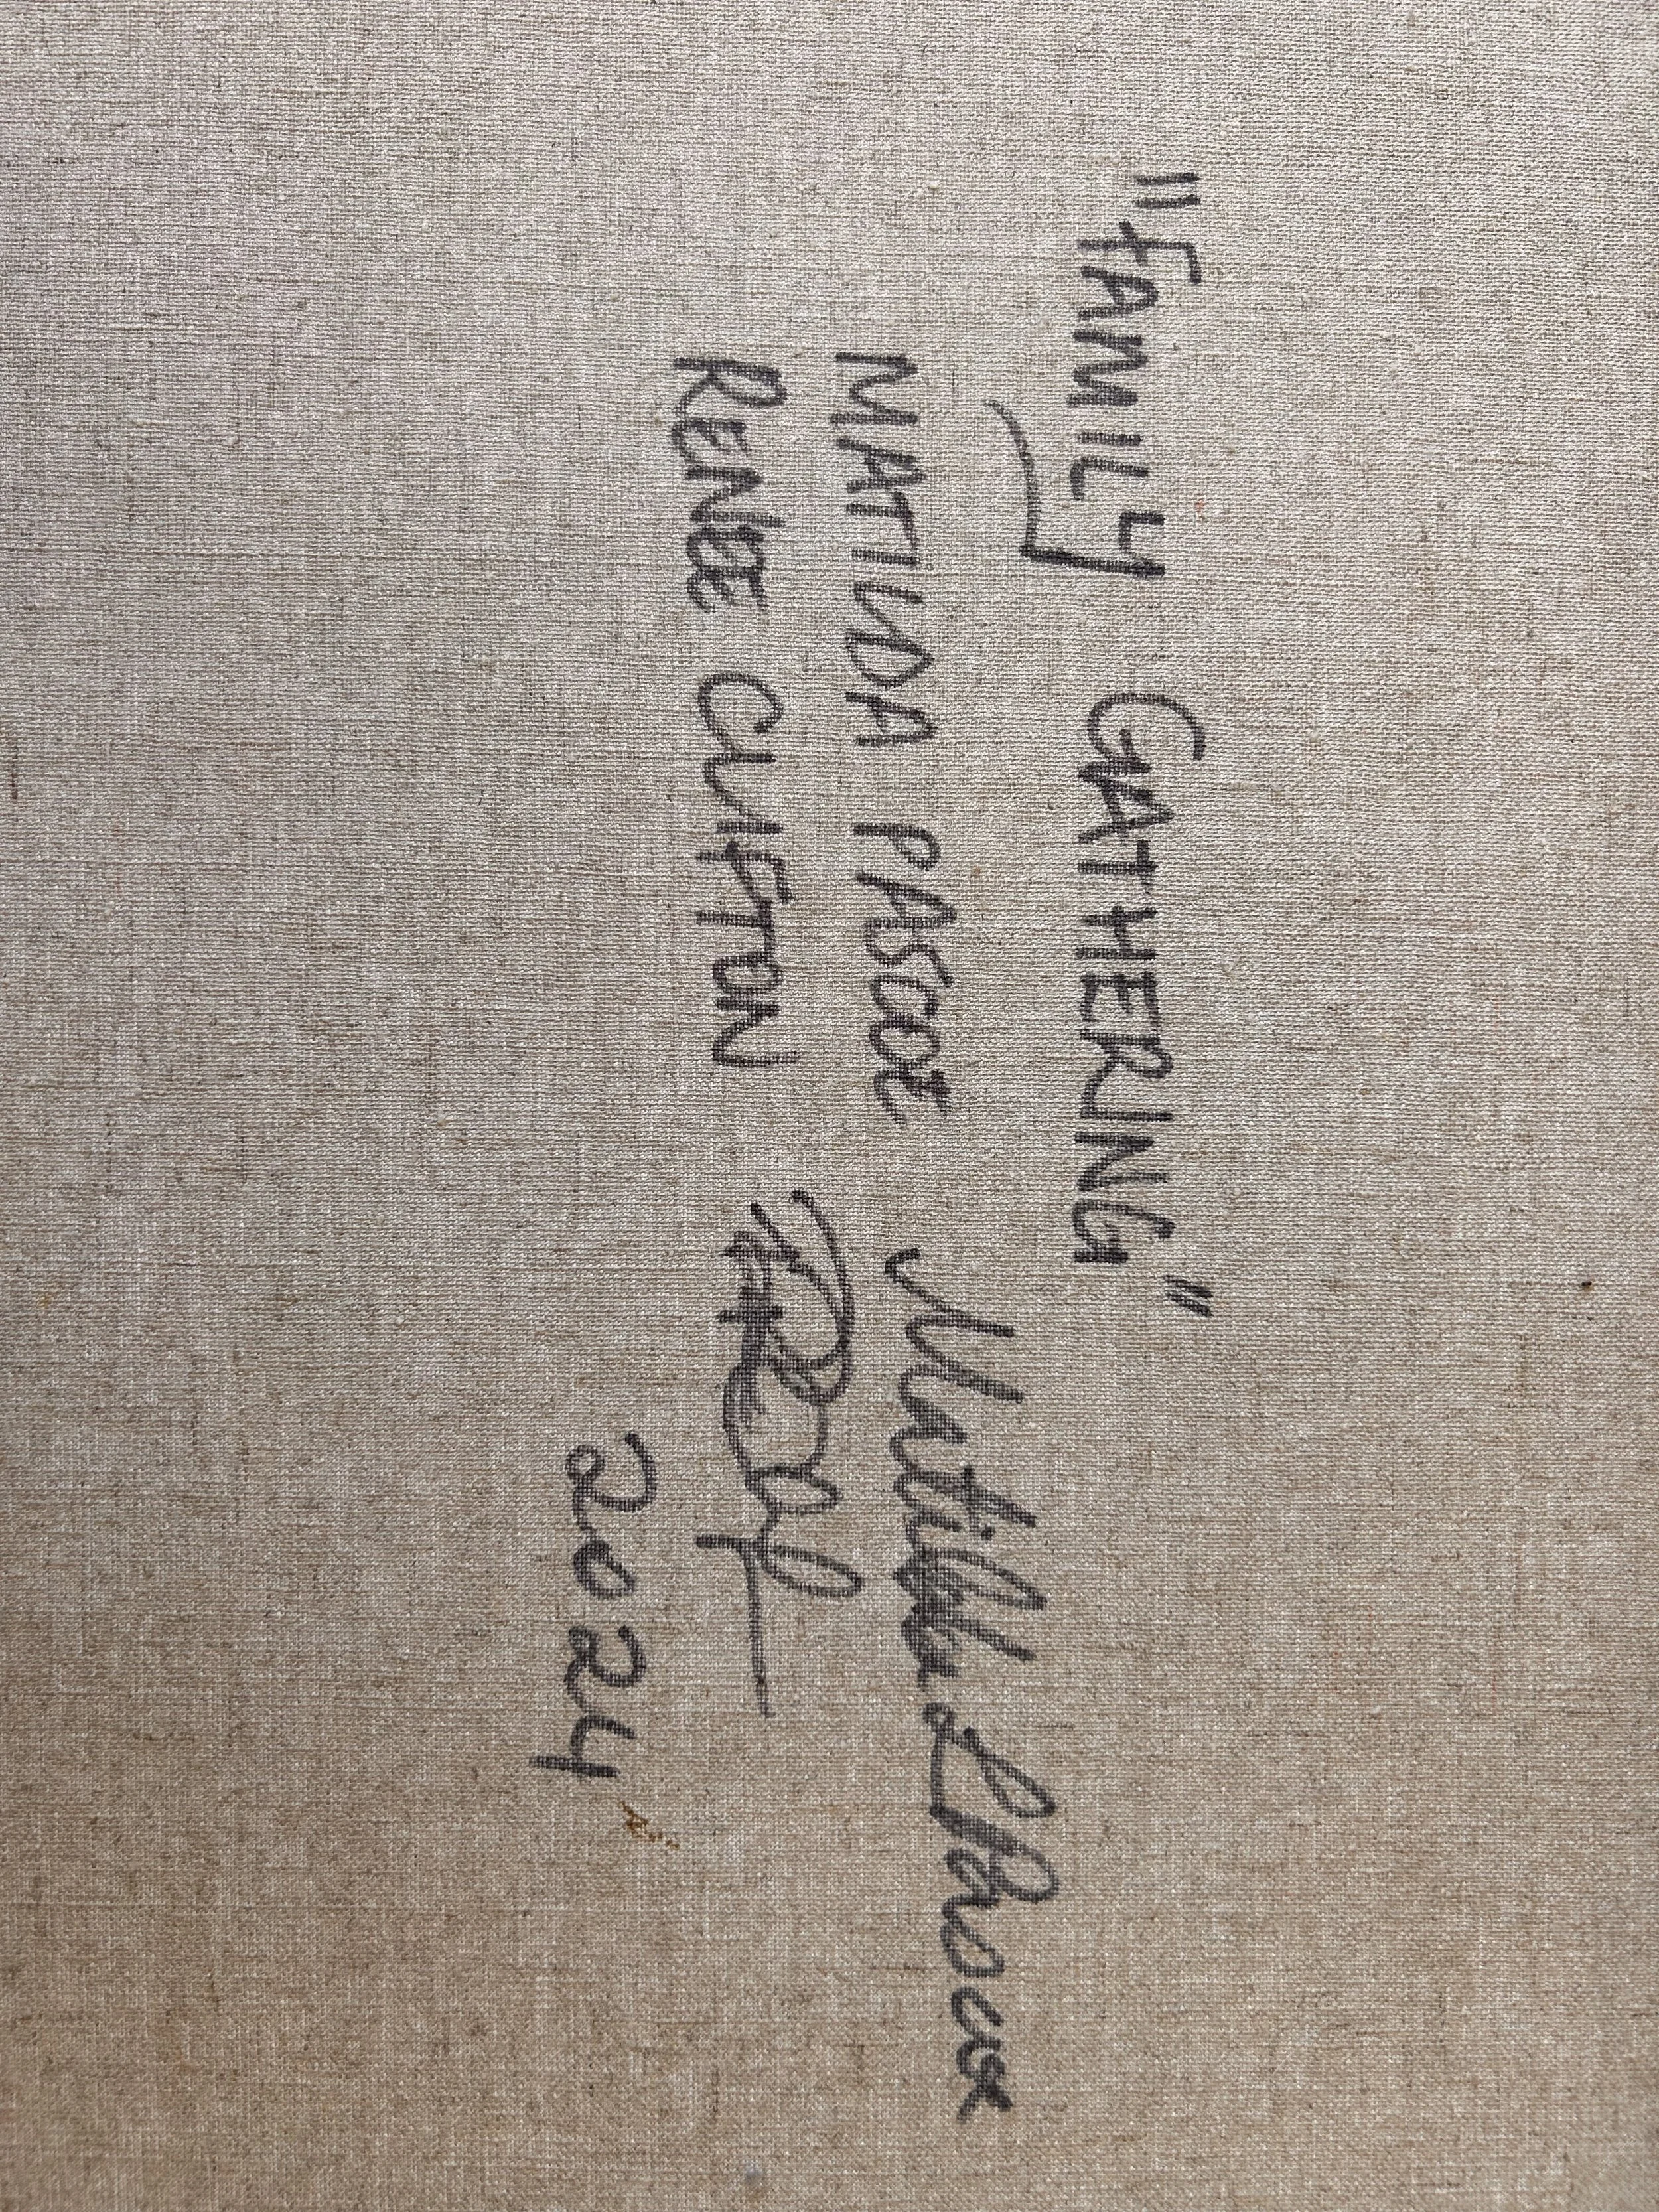 "FAMILY GATHERING"
MATILDA PASCOE Matilda Pascoe
RENEE CLIFTON
2024